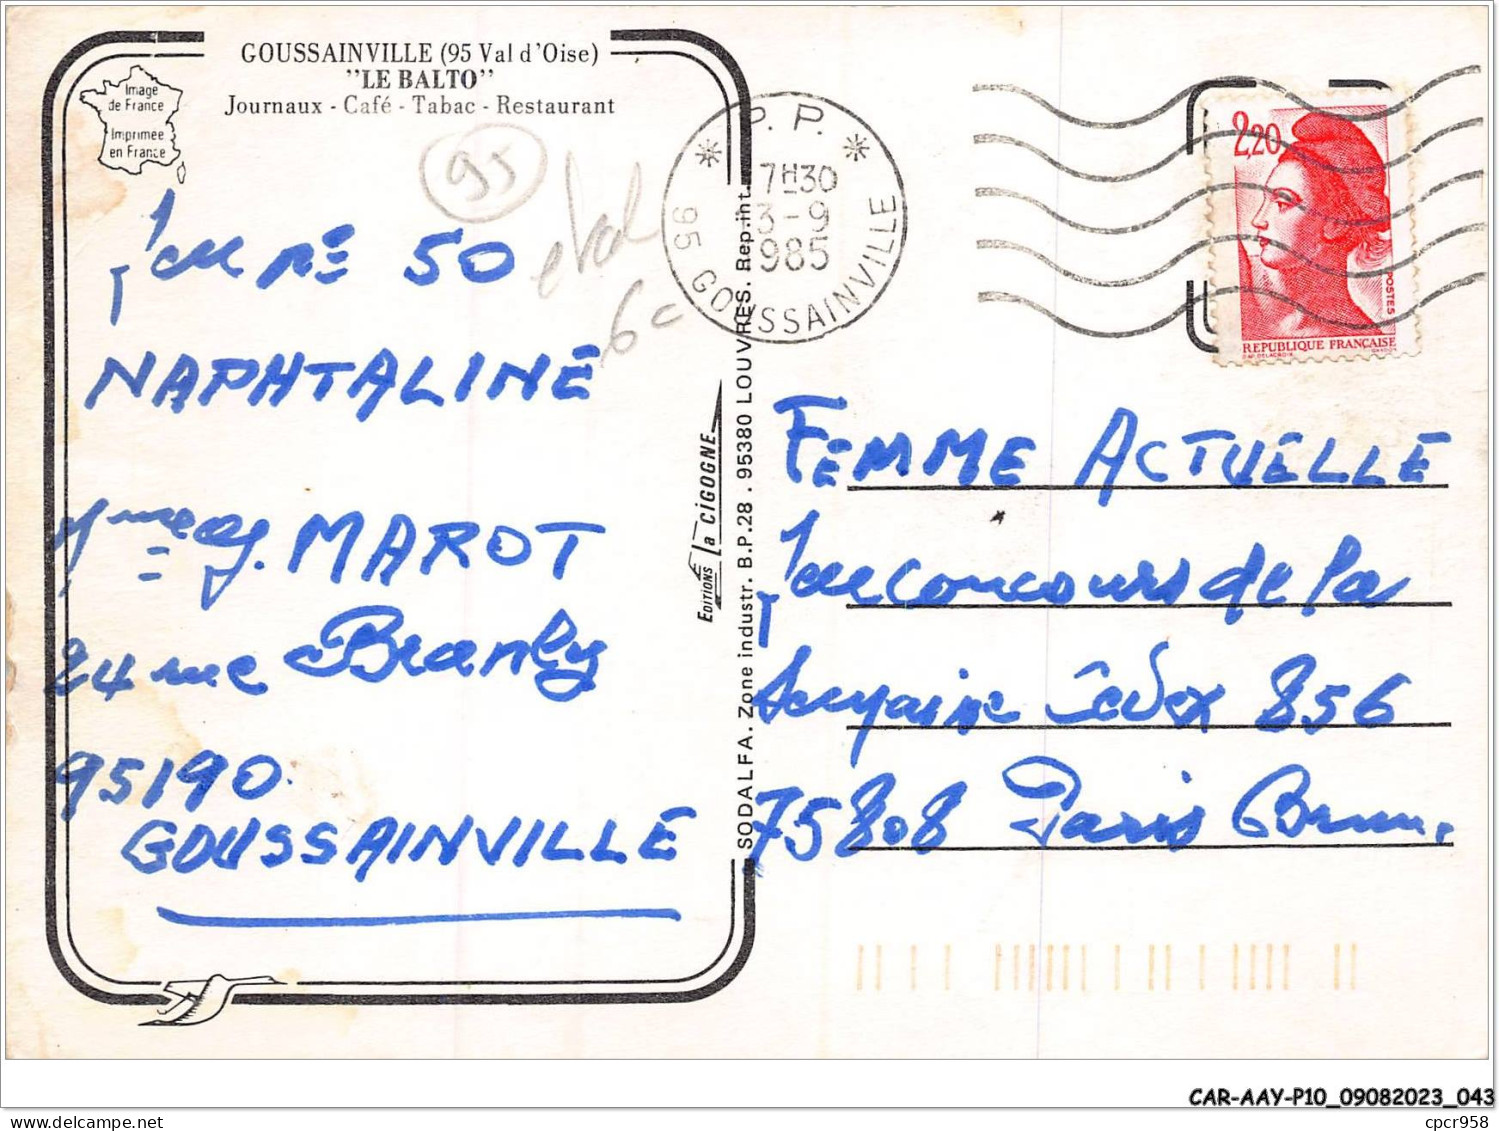 GOUSSAINVILLE (95 Val d'Oise)
"LE BALTO"
Journaux - Café - Tabac - Restaurant
Image
de France
Imprimée
en France
95
6
Jeu n° 50
NAPHTALINE
MAROT
24 rue Branly
95190
GOUSSAINVILLE
EDITIONS la CIGOGNE
SODALFA. Zone industr. B.P.28 . 95380 LOUVRES. Rep.int.
P.P.
7H30
3-9
1985
95 GOUSSAINVILLE
2,20
POSTES
REPUBLIQUE FRANÇAISE
D'AP. DELACROIX
GANDON
FEMME ACTUELLE
Jeu concours de la
semaine Cedex 856
75808 Paris
CAR-AAY-P10_09082023_043
cpcr958